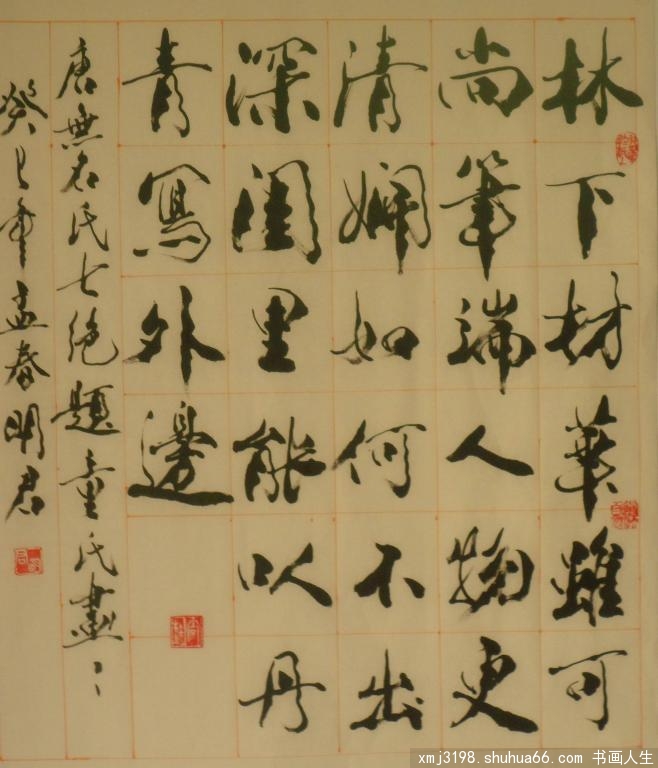 林下材華雖可
尚筆端人物更
清嫻如何不出
深閨里能以丹
青寫外邊
唐無名氏七绝題童氏畫
癸巳年孟春明君
xmj3198.shuhua66.com 书画人生